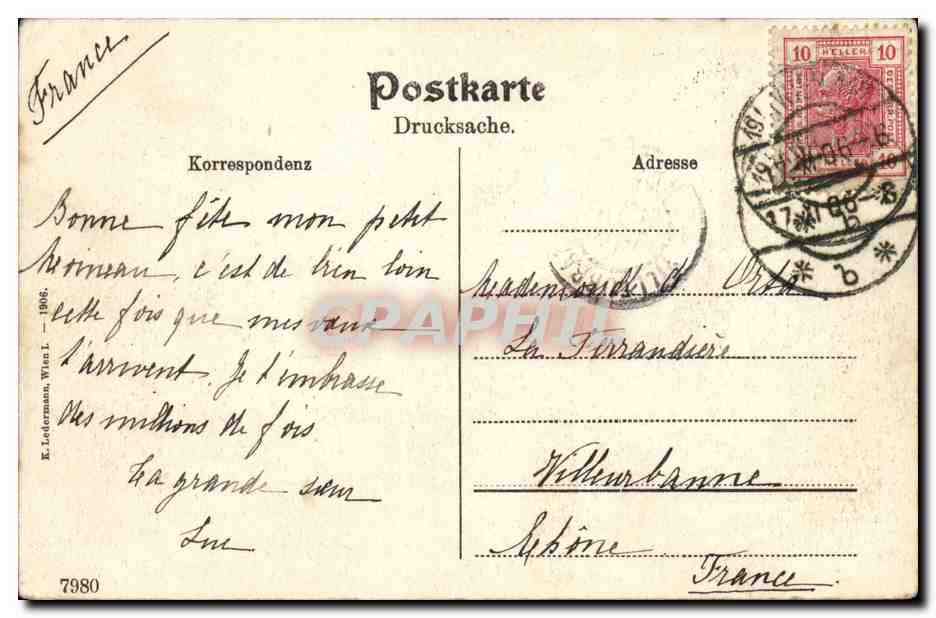 France
Postkarte
Drucksache.
Korrespondenz
Adresse
10 HELLER 10
Bonne fête mon petit
Moineau, c'est de bien loin
cette fois que mes vœux
t'arrivent. Je t'embrasse
des millions de fois.
Ta grande sœur
Luce
Mademoiselle
La Ferrandière
Villeurbanne
Rhône
France
K. Ledermann, Wien I. — 1906.
7980
CPAPHIL